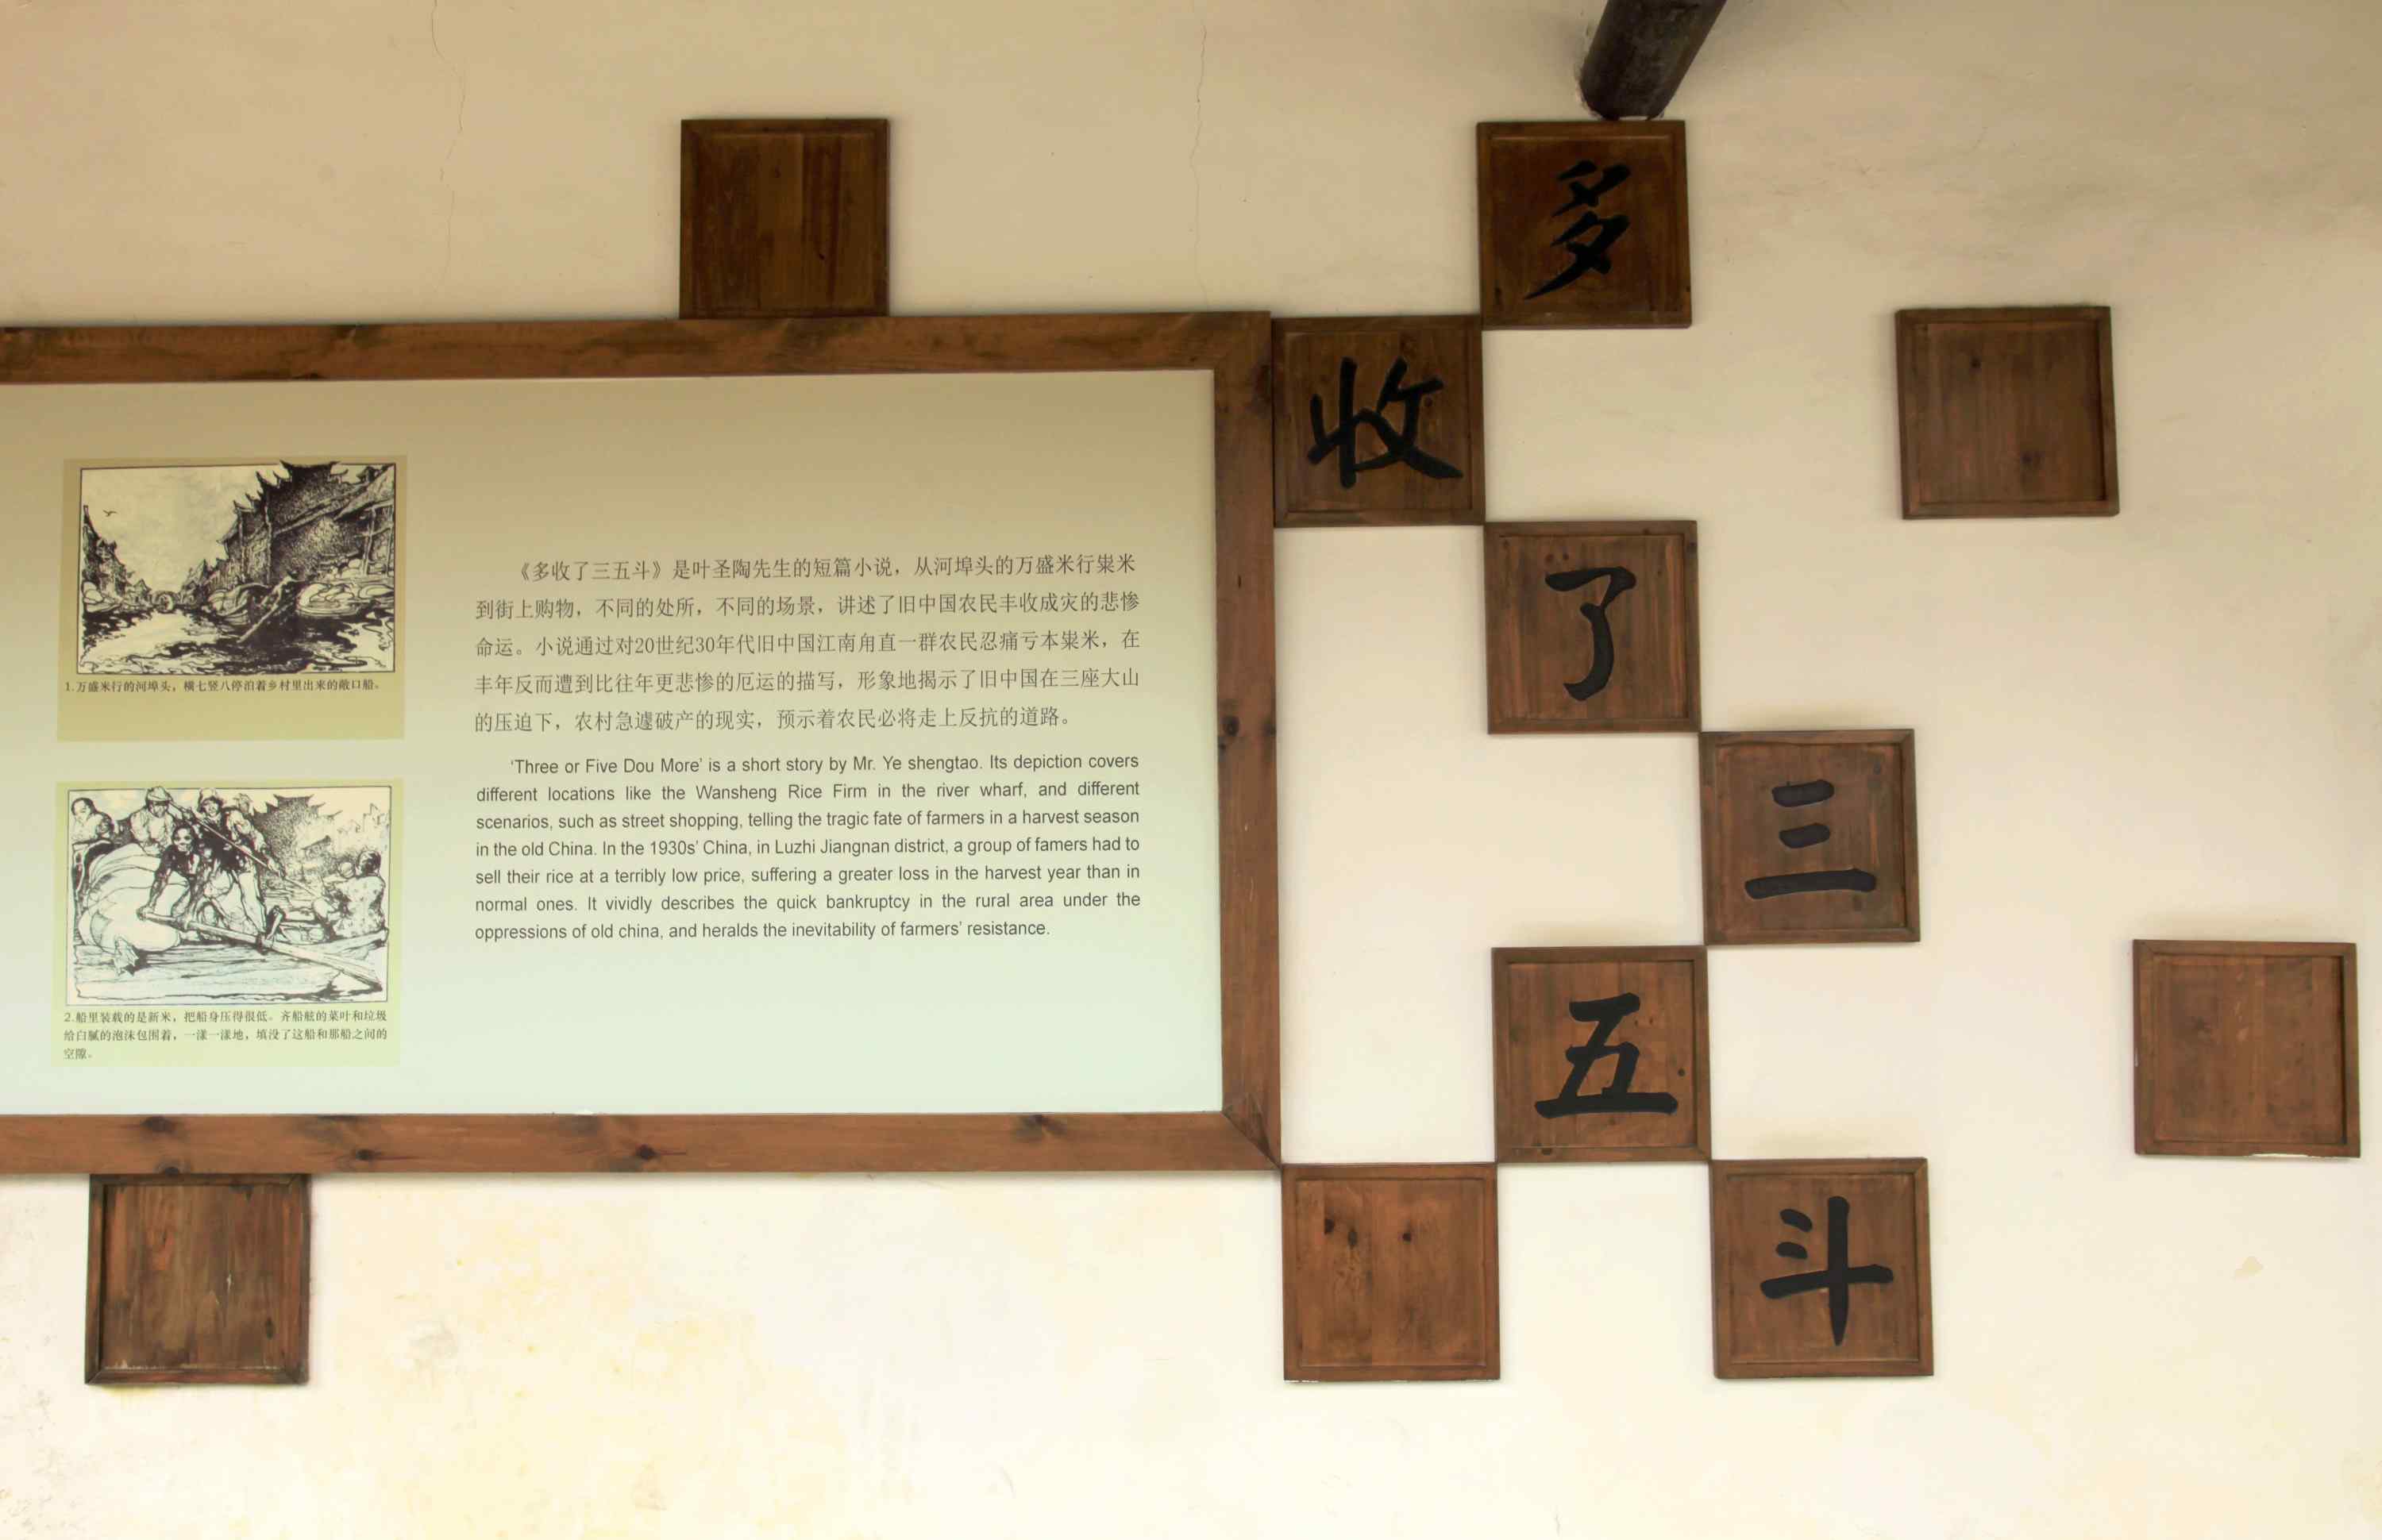 1.万盛米行的河埠头，横七竖八停泊着乡村里出来的敞口船。
2.船里装载的是新米，把船身压得很低。齐船舷的菜叶和垃圾
给白腻的泡沫包围着，一漾一漾地，填没了这船和那船之间的
空隙。
《多收了三五斗》是叶圣陶先生的短篇小说，从河埠头的万盛米行粜米
到街上购物，不同的处所，不同的场景，讲述了旧中国农民丰收成灾的悲惨
命运。小说通过对20世纪30年代旧中国江南甪直一群农民忍痛亏本粜米，在
丰年反而遭到比往年更悲惨的厄运的描写，形象地揭示了旧中国在三座大山
的压迫下，农村急遽破产的现实，预示着农民必将走上反抗的道路。
‘Three or Five Dou More’ is a short story by Mr. Ye shengtao. Its depiction covers
different locations like the Wansheng Rice Firm in the river wharf, and different
scenarios, such as street shopping, telling the tragic fate of farmers in a harvest season
in the old China. In the 1930s’ China, in Luzhi Jiangnan district, a group of famers had to
sell their rice at a terribly low price, suffering a greater loss in the harvest year than in
normal ones. It vividly describes the quick bankruptcy in the rural area under the
oppressions of old china, and heralds the inevitability of farmers’ resistance.
多
收
了
三
五
斗